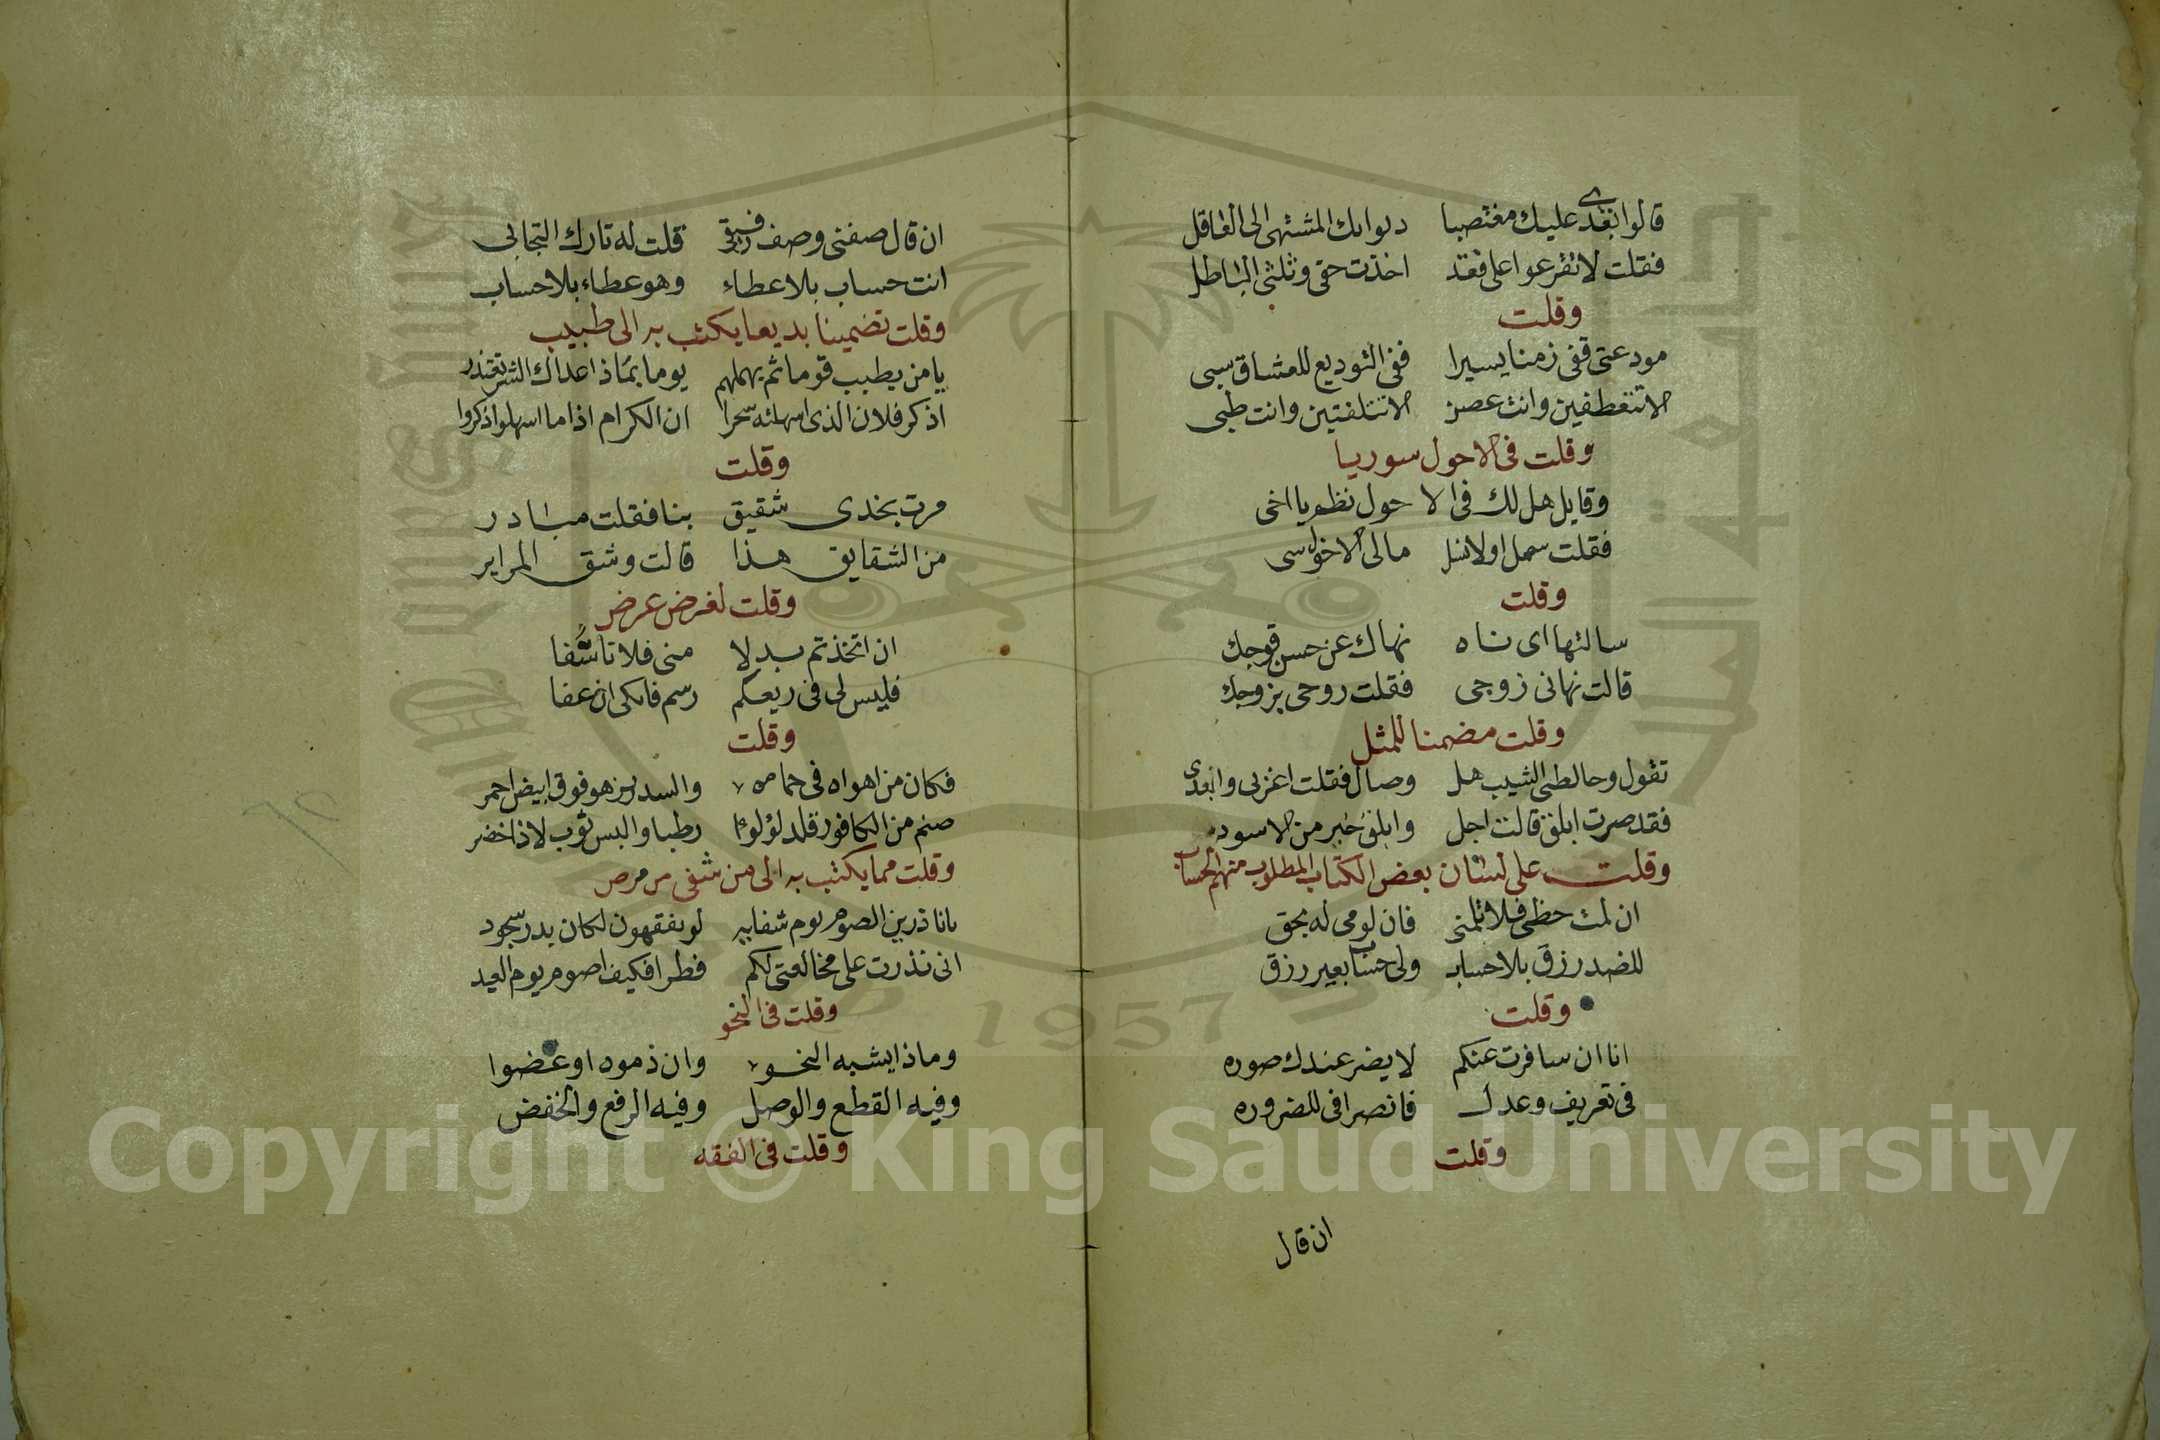 قالوا تعدى عليك مغتصبا ديوانك المشتهى الى الغافل
فقلت لا تقرعوا على فقد اخذت حقى وثلثى الباطل
وقلت
مودعتى قفى زمنا يسيرا ففى التوديع للعشاق سبى
الا تتعطفين وانت غصن الا تتلفتين وانت ظبى
وقلت فى الاحول سوريا
وقايل هل لك فى الاحول نظم يا اخى
فقلت سهل اولا تسل مالى الاحول سى
وقلت
سالتها اى ناه نهاك عن حسن قوجك
قالت نهانى زوجى فقلت روحى بزوجك
وقلت مضمنا للمثل
تقول وحالطى الشيب هل وصال فقلت اغزبى وابعدى
فقد صرت ابلق قالت اجل وابلق خير من الاسود
وقلت على لسان بعض الكتاب المطلوب منهم الحساب
ان لمت حظى فلا تلمنى فان لومى له بحق
للضد رزق بلا حساب ولى حساب بغير رزق
وقلت
انا ان سافرت عنكم لا يضر عندك صوره
فى تعريف وعدل فانصرافى للضروره
وقلت
ان قال
ان قال صفنى وصف رفيقى قلت له تارك التجابى
انت حساب بلا عطاء وهو عطاء بلا حساب
وقلت تضمينا بديعا يكتب به الى طبيب
يا من يطبب قوما ثم يهملهم يوما بماذا عداك الشر تعتذر
اذكر فلان الذى اسهلته سحرا ان الكرام اذا ما اسهلوا ذكروا
وقلت
مرت بخدى شقيق بنا فقلت مبادر
من الشقايق هذا قالت وشق المراير
وقلت لغرض عرض
ان اتخذتم بدلا منى فلا تاسفا
فليس لى فى ربعكم رسم فابكى ان عفا
وقلت
فكان من اهواه فى حمامه والسدر يزهو فوق ابيض احمر
صنم من الكافور قلد لؤلؤا رطبا والبس ثوب لاذ اخضر
وقلت مما يكتب به الى من شفى من مرض
يا ناذرين الصوم يوم شفايه لو تفقهون لكان يدر سجود
انى نذرت على مخالفتى لكم فطرا فكيف اصوم يوم العيد
وقلت فى النحو
وماذا يشبه النحو وان ذموه او عضوا
وفيه القطع والوصل وفيه الرفع والخفض
وقلت فى الفقه
Copyright © King Saud University
1957